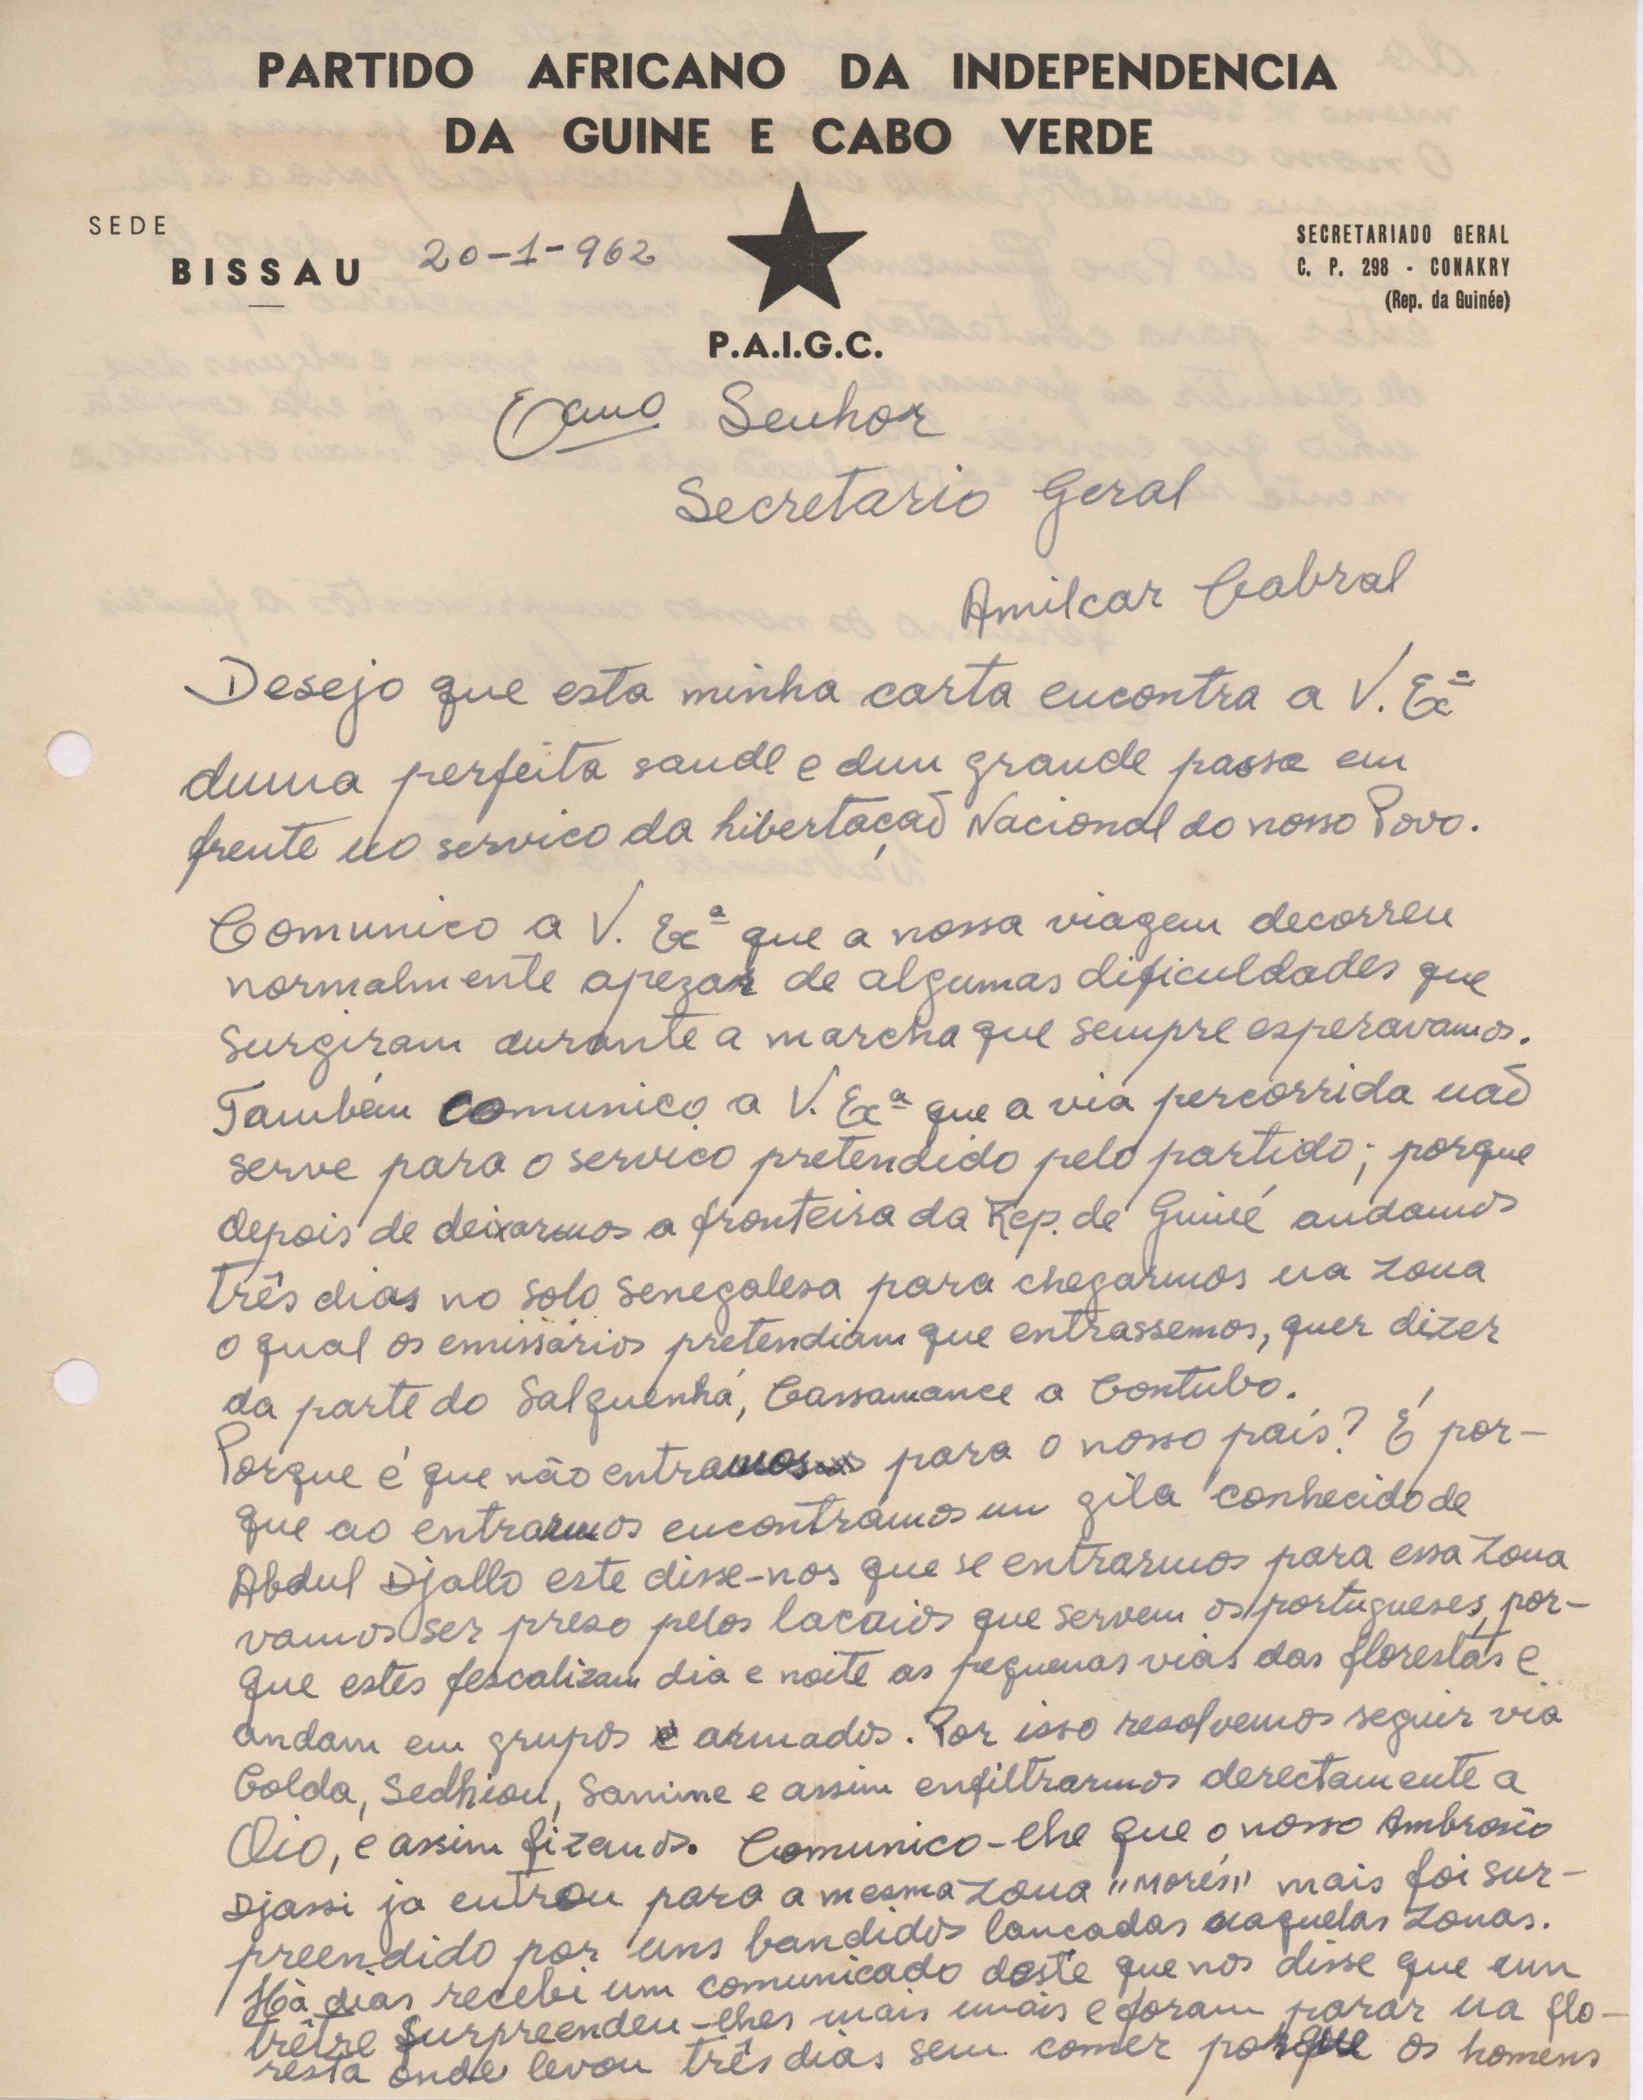 PARTIDO AFRICANO DA INDEPENDENCIA
DA GUINE E CABO VERDE
SEDE
BISSAU
20-1-962
SECRETARIADO GERAL
C. P. 298 - CONAKRY
(Rep. da Guinée)
P.A.I.G.C.
Exmo Senhor
Secretario Geral
Amilcar Cabral
Desejo que esta minha carta encontra a V. Exª
duma perfeita saude e dum grande passo em
frente no servico da libertaçaõ Nacional do nosso Povo.
Comunico a V. Exª que a nossa viagem decorreu
normalmente apezar de algumas dificuldades que
surgiram durante a marcha que sempre esperavamos.
Também comunico a V. Exª que a via percorrida naõ
serve para o servico pretendido pelo partido; porque
depois de deixarmos a fronteira da Rep. de Guiné andamos
três dias no solo senegalesa para chegarmos na zona
o qual os emissários pretendiam que entrassemos, quer dizer
da parte do Salquenhá, Cassamance a Contubo.
Porque é que não entramos para o nosso país? É por-
que ao entrarmos encontrámos um gila conhecido de
Abdul Djallo este disse-nos que se entrarmos para essa zona
vamos ser preso pelos lacaios que servem os portugueses, por-
que estes fescalizam dia e noite as pequenas vias das florestas e
andam em grupos e armados. Por isso resolvemos seguir via
Colda, Sedhiou, Sanine e assim enfiltrarmos derectamente a
Oio, e assim fizemos. Comunico-lhe que o nosso Ambrosio
Djassi ja entrou para a mesma zona "Morés" mais foi sur-
preendido por uns bandidos lancadas naquelas zonas.
Há dias recebi um comunicado deste que nos disse que um
trêtre surpreendeu-lhes mais e foram parar na flo-
resta onde levou três dias sem comer porque os homens